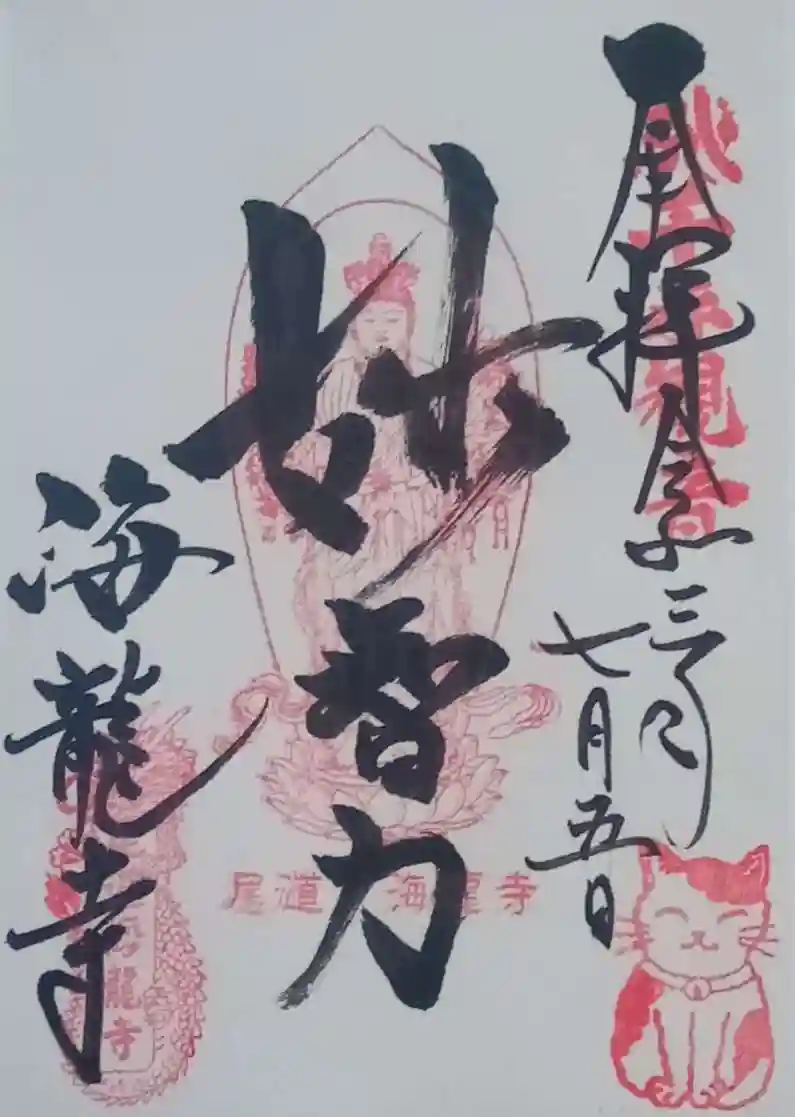 奉拝 令和三年
七月五日
妙智力
海龍寺
尾道 海龍寺
海龍寺